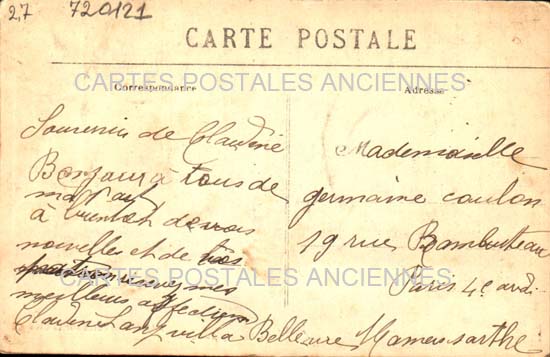 27 720121
CARTE POSTALE
CARTES POSTALES ANCIENNES
Correspondance
Adresse
Souvenir de Claudine
Bonjour à tous de
ma part
à bientot de vos
nouvelles et de
recevez mes
meilleurs affections
Claudine villa Bellevue Mamers sarthe
Mademoiselle
germaine coulon
19 rue Rambuteau
Paris 4e ardi
CARTES POSTALES ANCIENNES